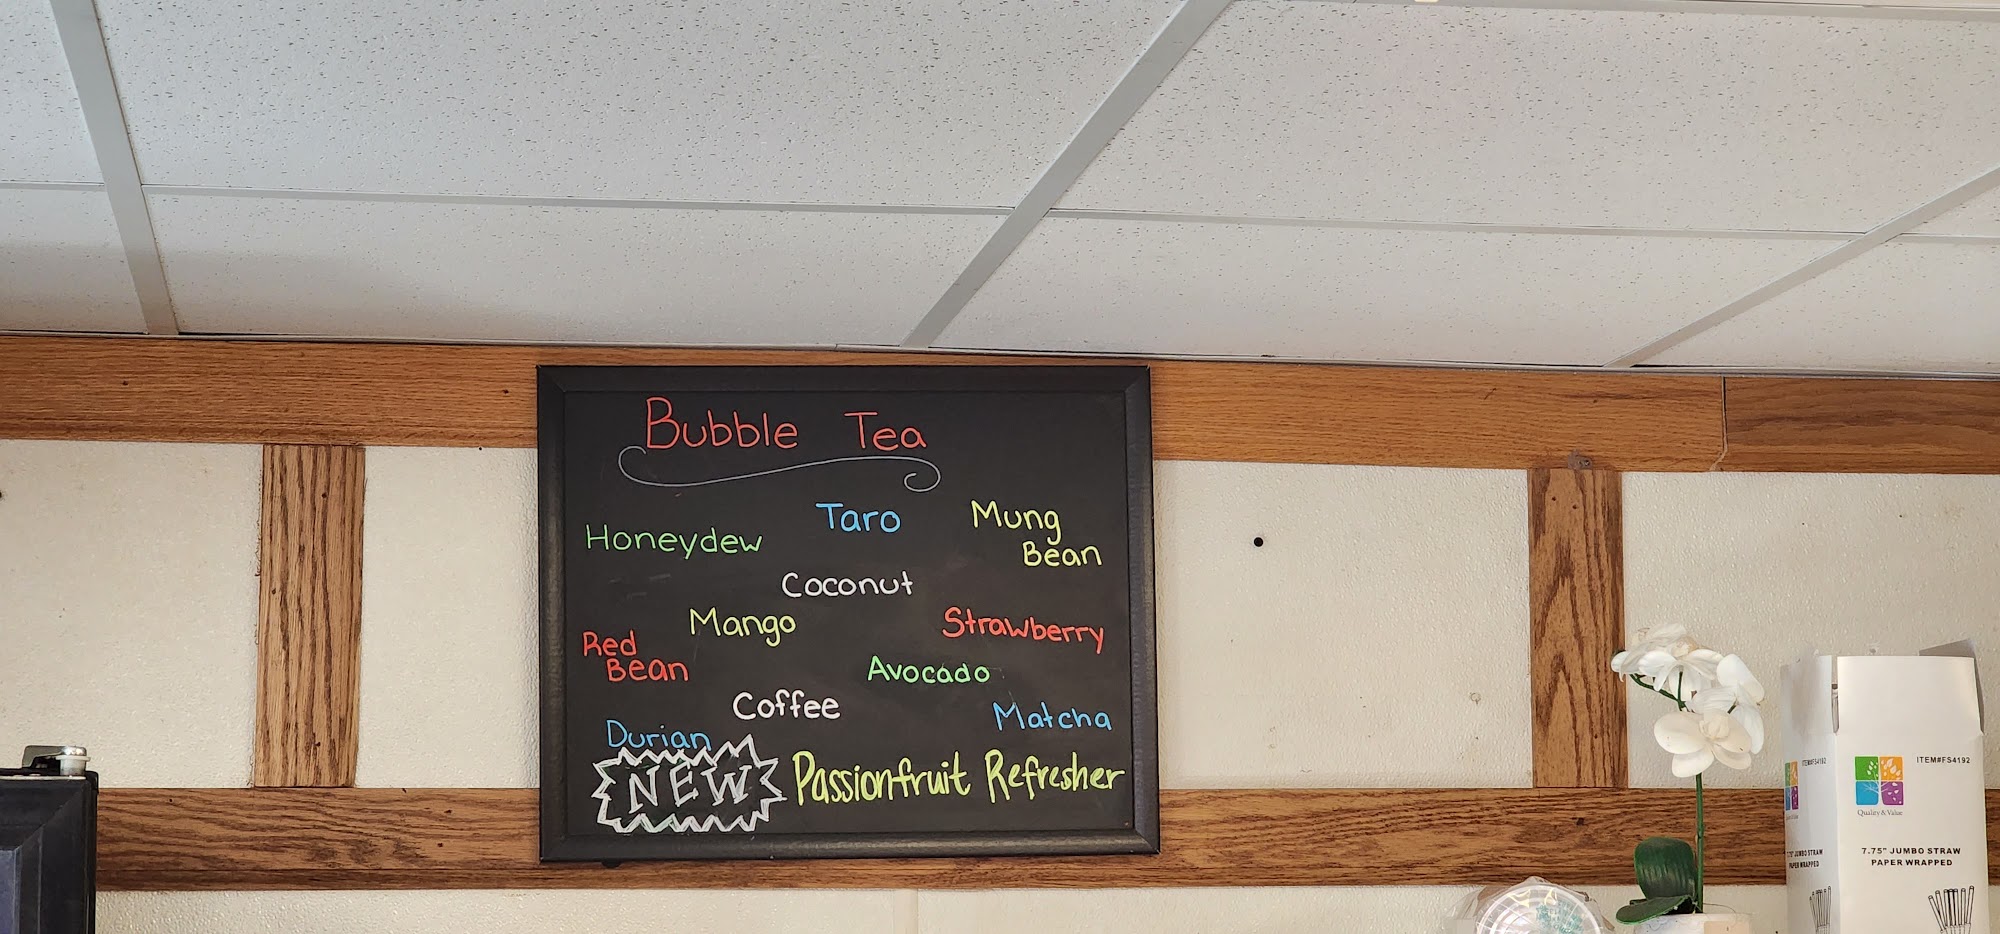 Bubble Tea
Honeydew
Taro
Mung
Bean
Coconut
Mango
Strawberry
Red
Bean
Avocado
Coffee
Matcha
Durian
NEW Passionfruit Refresher
ITEM#FS4192
Quality & Value
7.75" JUMBO STRAW
PAPER WRAPPED
ITEM#FS4192
Quality & Value
7.75" JUMBO STRAW
PAPER WRAPPED